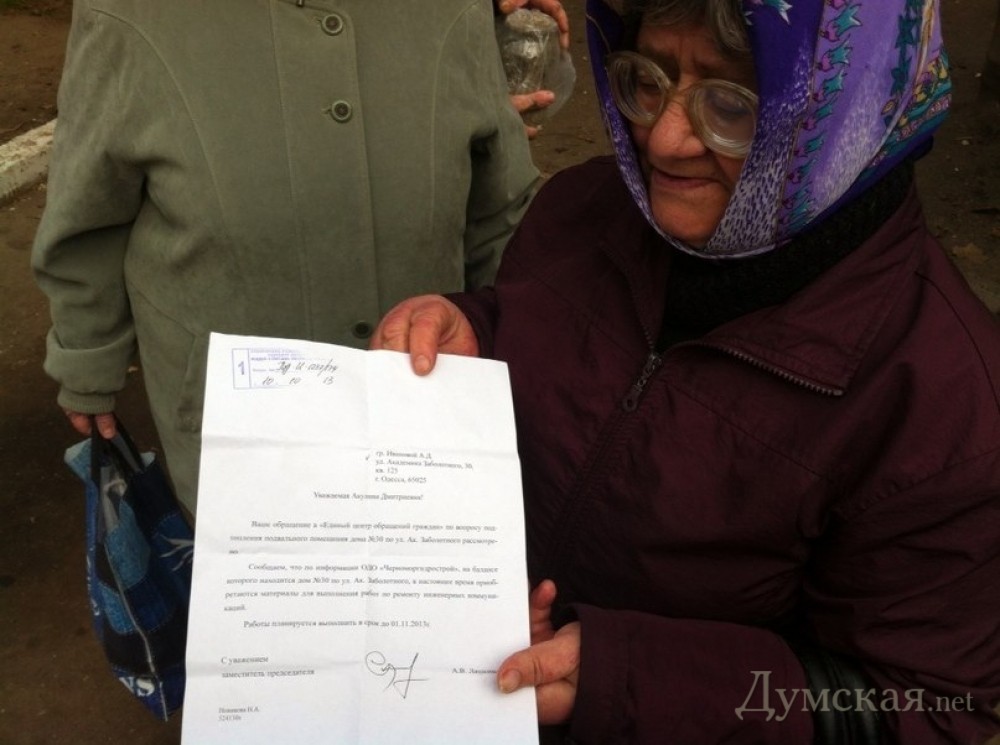 1
10 10 13
гр. Ивановой А.Д.
ул. Академика Заболотного, 30,
кв. 125
г. Одесса, 65025
Уважаемая Акулина Дмитриевна!
Ваше обращение в «Единый центр обращений граждан» по вопросу под-
топления подвального помещения дома №30 по ул. Ак. Заболотного рассмотре-
но.
Сообщаем, что по информации ОДО «Черноморгидрострой», на балансе
которого находится дом №30 по ул. Ак. Заболотного, в настоящее время приоб-
ретаются материалы для выполнения работ по ремонту инженерных коммуни-
каций.
Работы планируется выполнить в срок до 01.11.2013г.
С уважением
заместитель председателя
А.В.
Новикова Н.А.
Думская.net